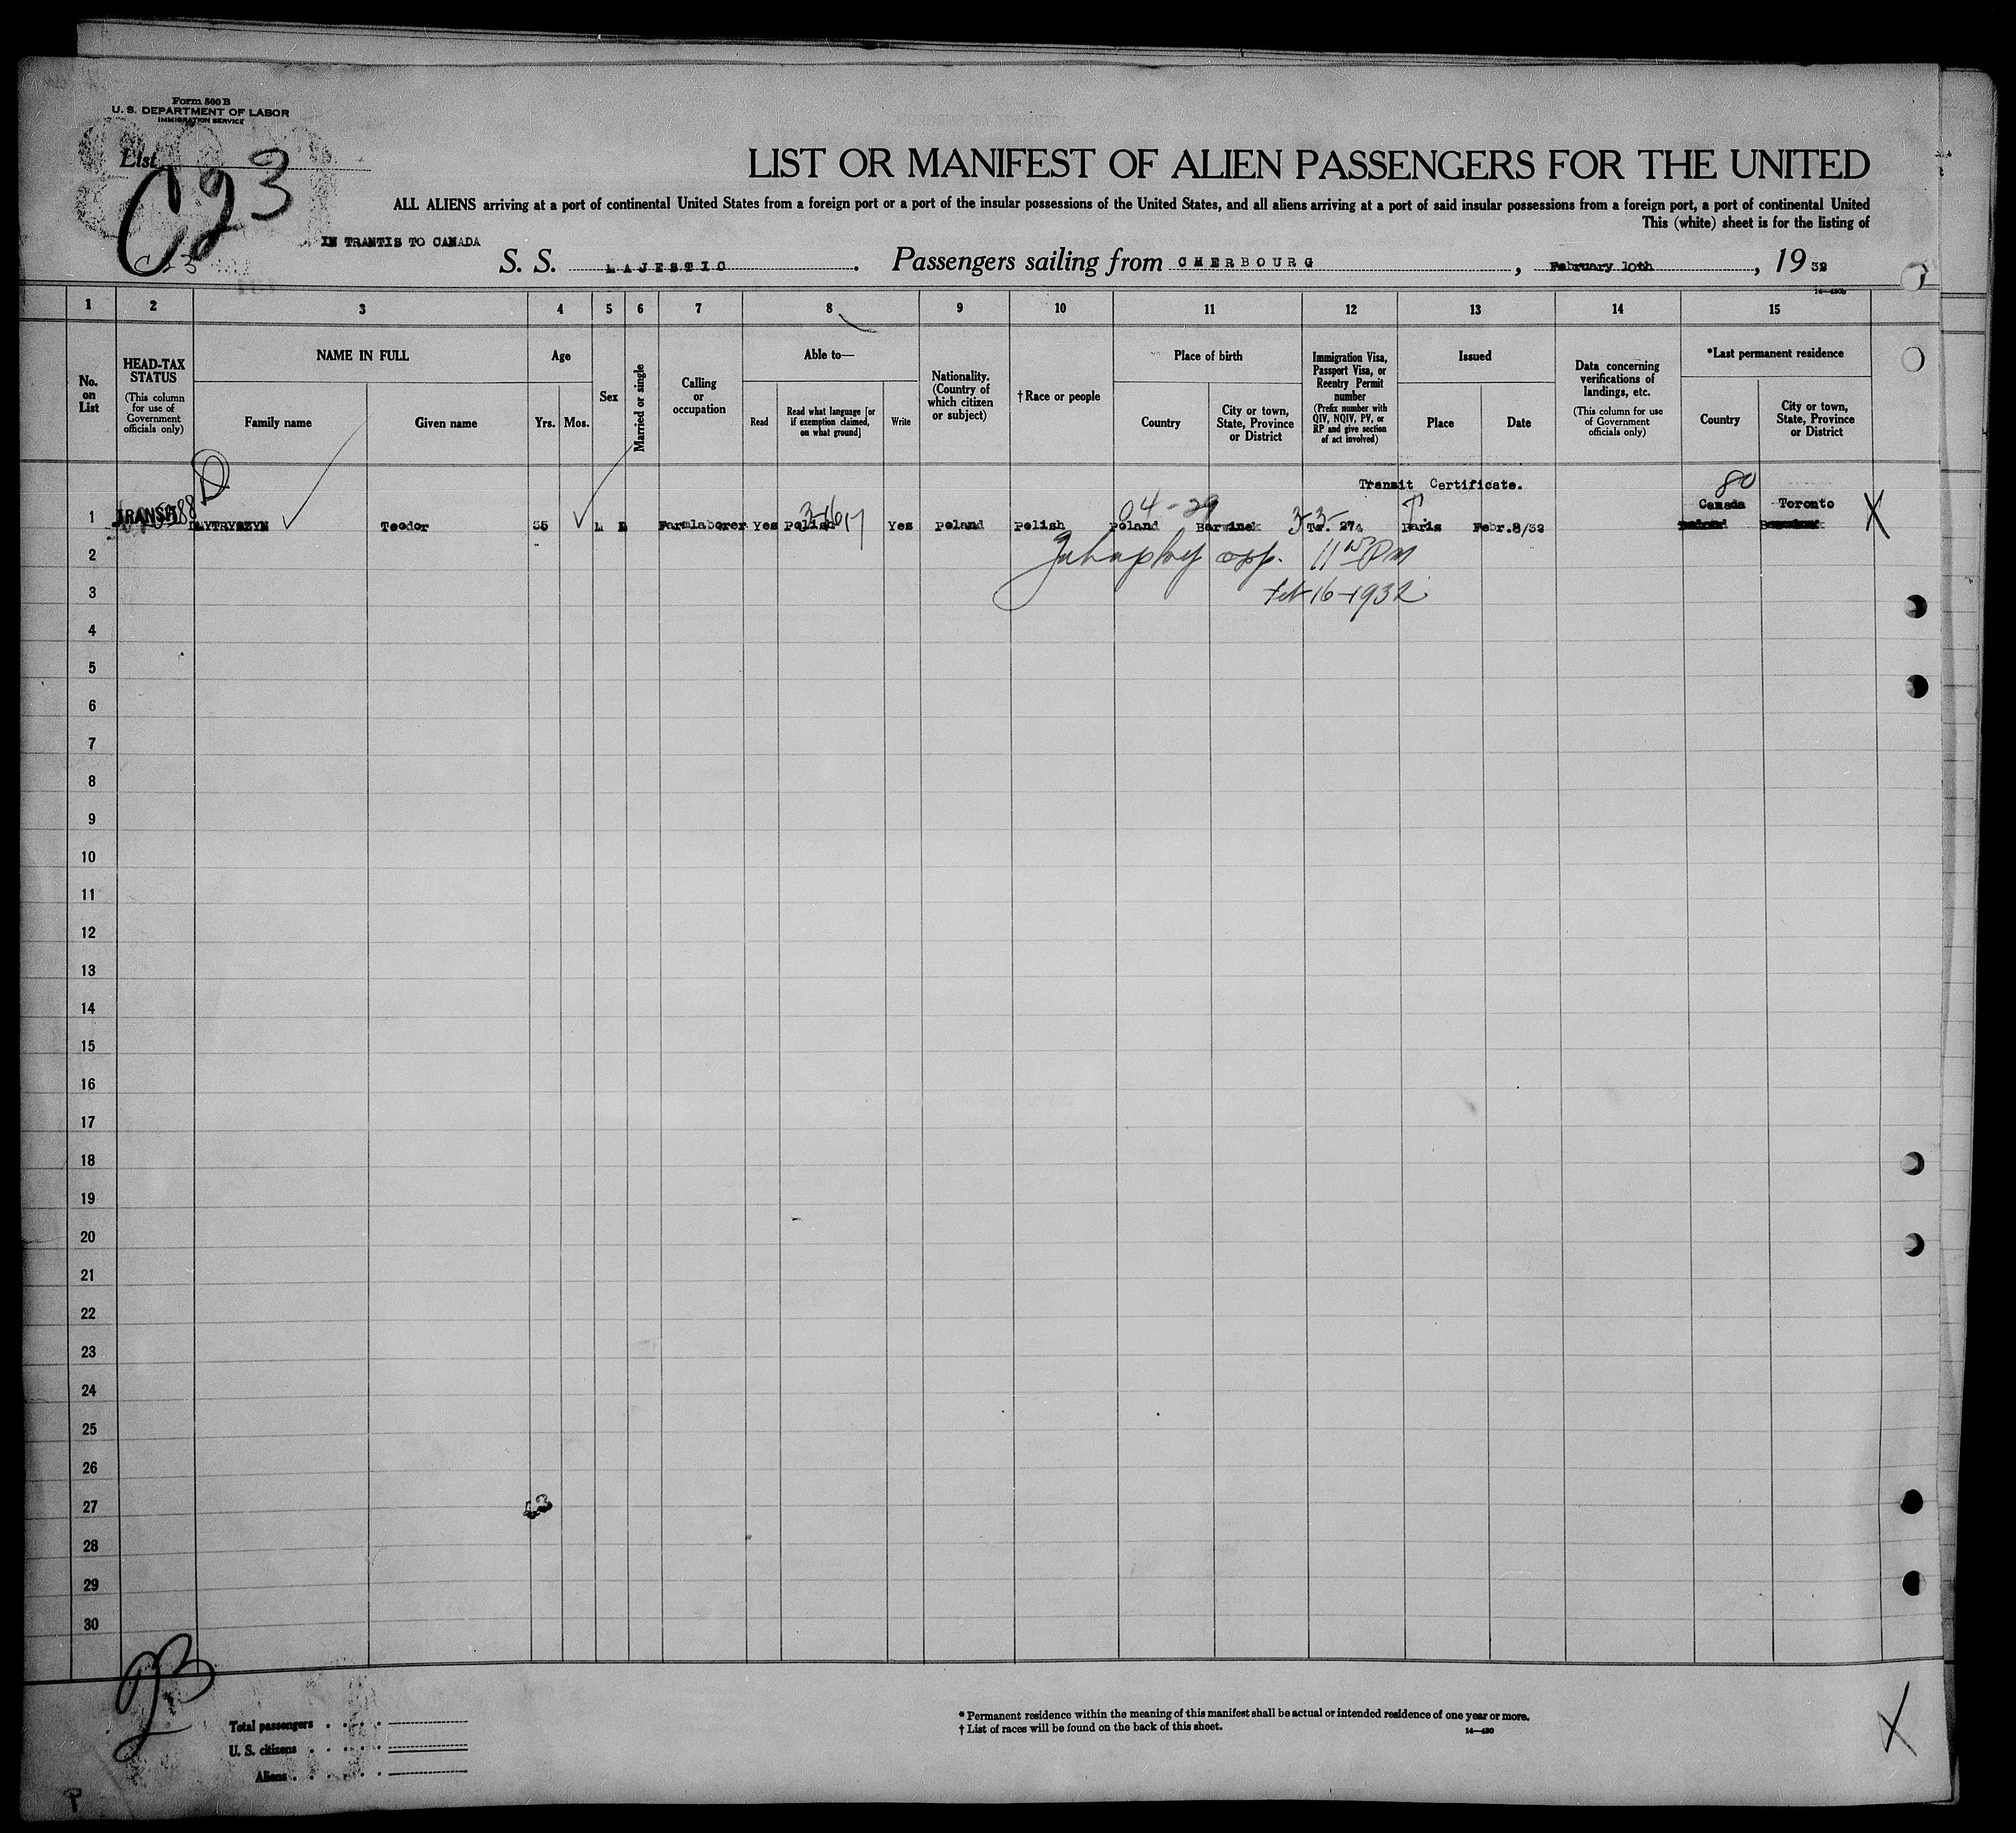 Form 500 B
U. S. DEPARTMENT OF LABOR
IMMIGRATION SERVICE
List
C23
LIST OR MANIFEST OF ALIEN PASSENGERS FOR THE UNITED
ALL ALIENS arriving at a port of continental United States from a foreign port or a port of the insular possessions of the United States, and all aliens arriving at a port of said insular possessions from a foreign port, a port of continental United
This (white) sheet is for the listing of
IN TRANTIS TO CANADA
C 23
S. S. MAJESTIC. Passengers sailing from CHERBOURG, February 10th, 1932
14—430b
1 2 3 4 5 6 7 8 9 10 11 12 13 14 15
No. on List
HEAD-TAX STATUS
(This column for use of Government officials only)
NAME IN FULL
Family name
Given name
Age
Yrs.
Mos.
Sex
Married or single
Calling or occupation
Able to—
Read
Read what language [or if exemption claimed, on what ground]
Write
Nationality. (Country of which citizen or subject)
†Race or people
Place of birth
Country
City or town, State, Province or District
Immigration Visa, Passport Visa, or Reentry Permit number
(Prefix number with QIV, NQIV, PV, or RP and give section of act involved)
Issued
Place
Date
Data concerning verifications of landings, etc.
(This column for use of Government officials only)
*Last permanent residence
Country
City or town, State, Province or District
Transit Certificate.
80
04 - 29
Canada Toronto
1 TRANSIT DMYTRYSZYN Teodor 35 M Farmlaborer Yes Polish Yes Poland Polish Poland Barwinek Tr. 274 Paris Febr.8/32 X
2 opp. 11 PM
3 Feb 16-1932
4
5
6
7
8
9
10
11
12
13
14
15
16
17
18
19
20
21
22
23
24
25
26
27
28
29
30
Total passengers
U. S. citizens
Aliens
* Permanent residence within the meaning of this manifest shall be actual or intended residence of one year or more.
† List of races will be found on the back of this sheet.
14—430
X
P